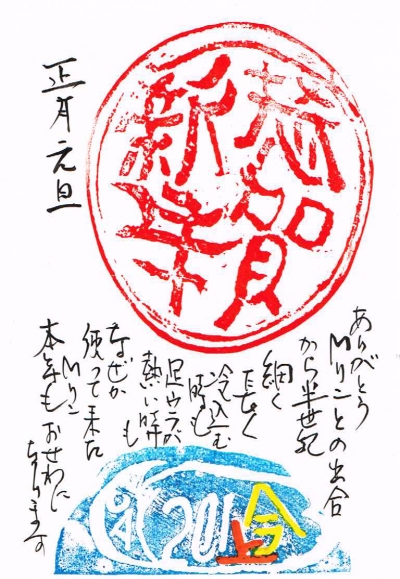 恭賀
新年
正月元旦
ありがとう
Mリンとの出合
から半世紀
細く
長く
冷込む
時も
足ウラが
熱い時
も
なぜか
使って来た
Mリン
本年もおせわに
なります
201